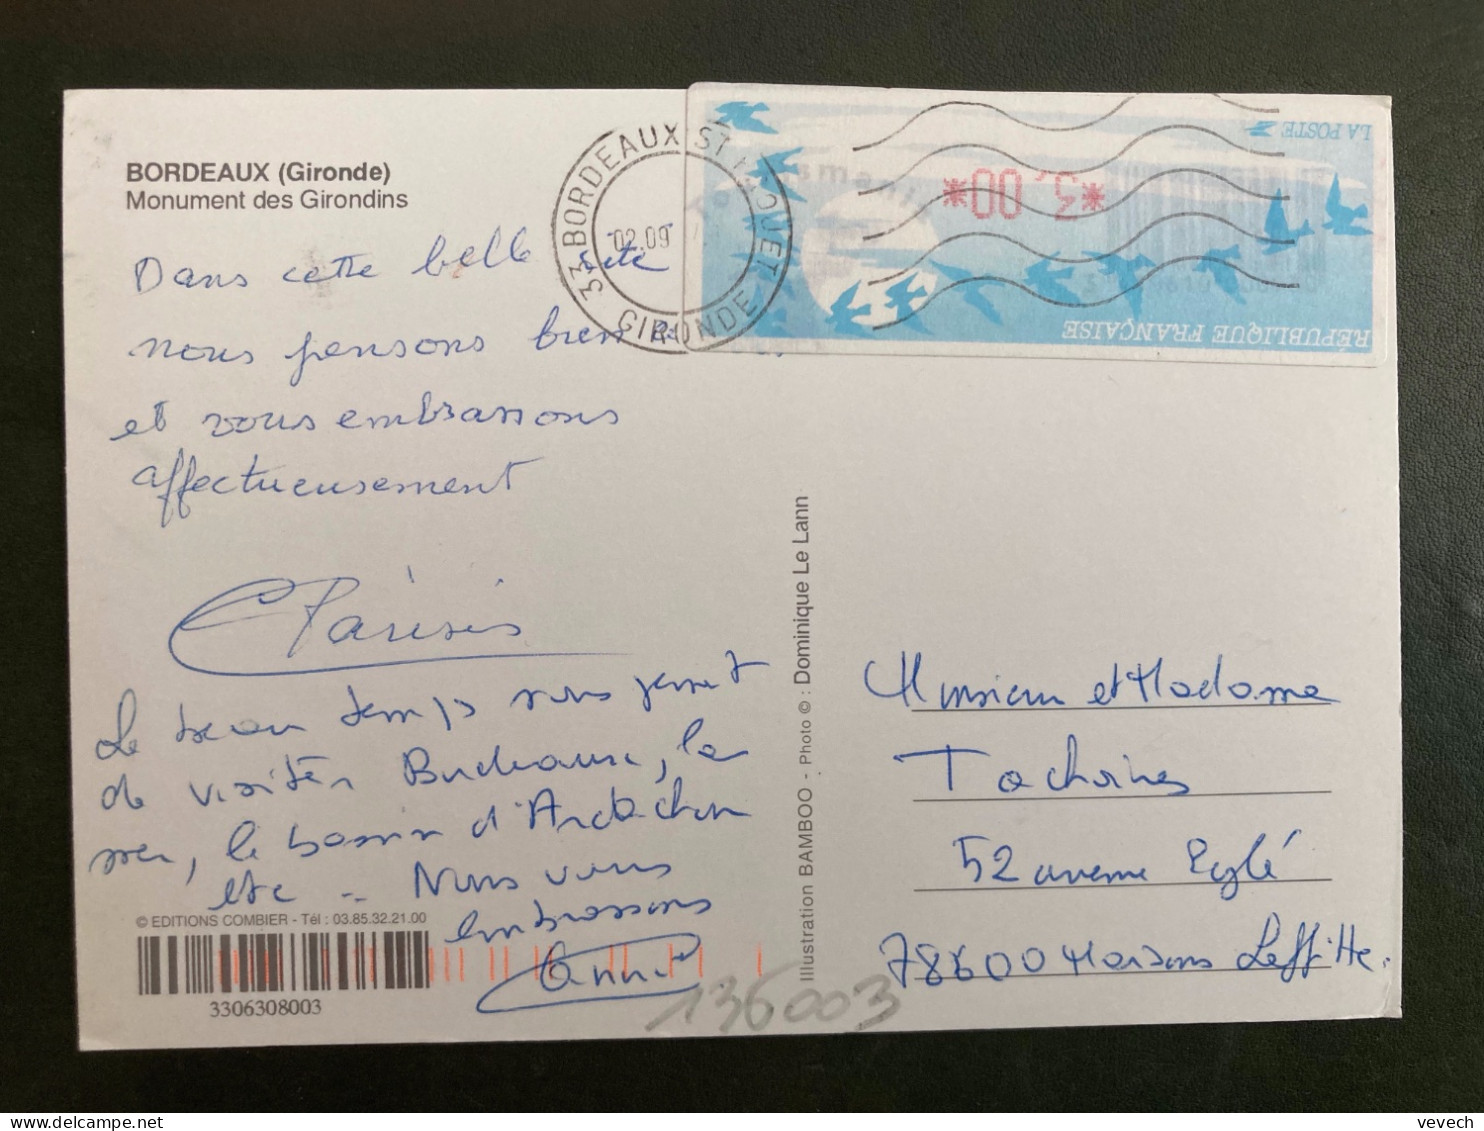 BORDEAUX (Gironde)
Monument des Girondins
33 BORDEAUX ST
GIRONDE
02.09
LA POSTE
*3,00*
RÉPUBLIQUE FRANÇAISE
Dans cette belle cité
nous pensons bien à
et vous embrassons
affectueusement
Le beau temps nous permet
de visiter Bordeaux, la
mer, le bassin d'Arcachon
etc .. Nous vous
embrassons
Annie
© EDITIONS COMBIER - Tél : 03.85.32.21.00
3306308003
136003
Illustration BAMBOO - Photo © : Dominique Le Lann
Monsieur et Madame
52 avenue Eglé
78600 Maisons Laffitte.
vevech